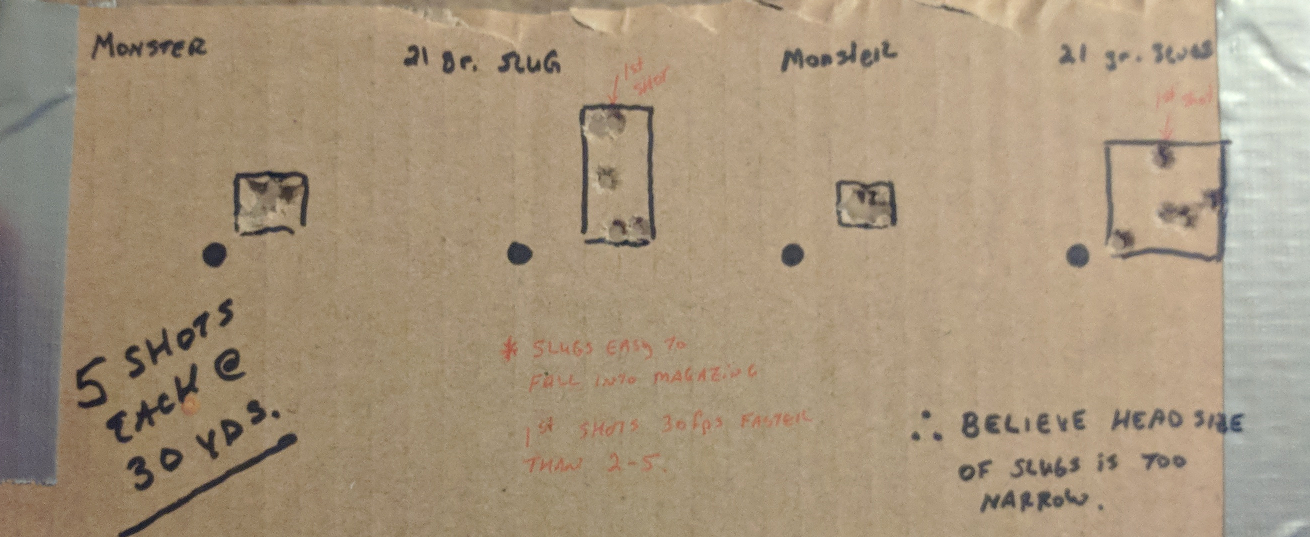 MONSTER
21 gr. SLUG
1st
SHOT
MonsteR
21 gr. SLUGS
1st shot
5 SHOTS
EACH @
30 YDS.
* SLUGS EASY TO
FALL INTO MAGAZING
1st SHOTS 30fps FASTER
THAN 2-5.
∴ BELIEVE HEAD SIZE
OF SLUGS iS TOO
NARROW.